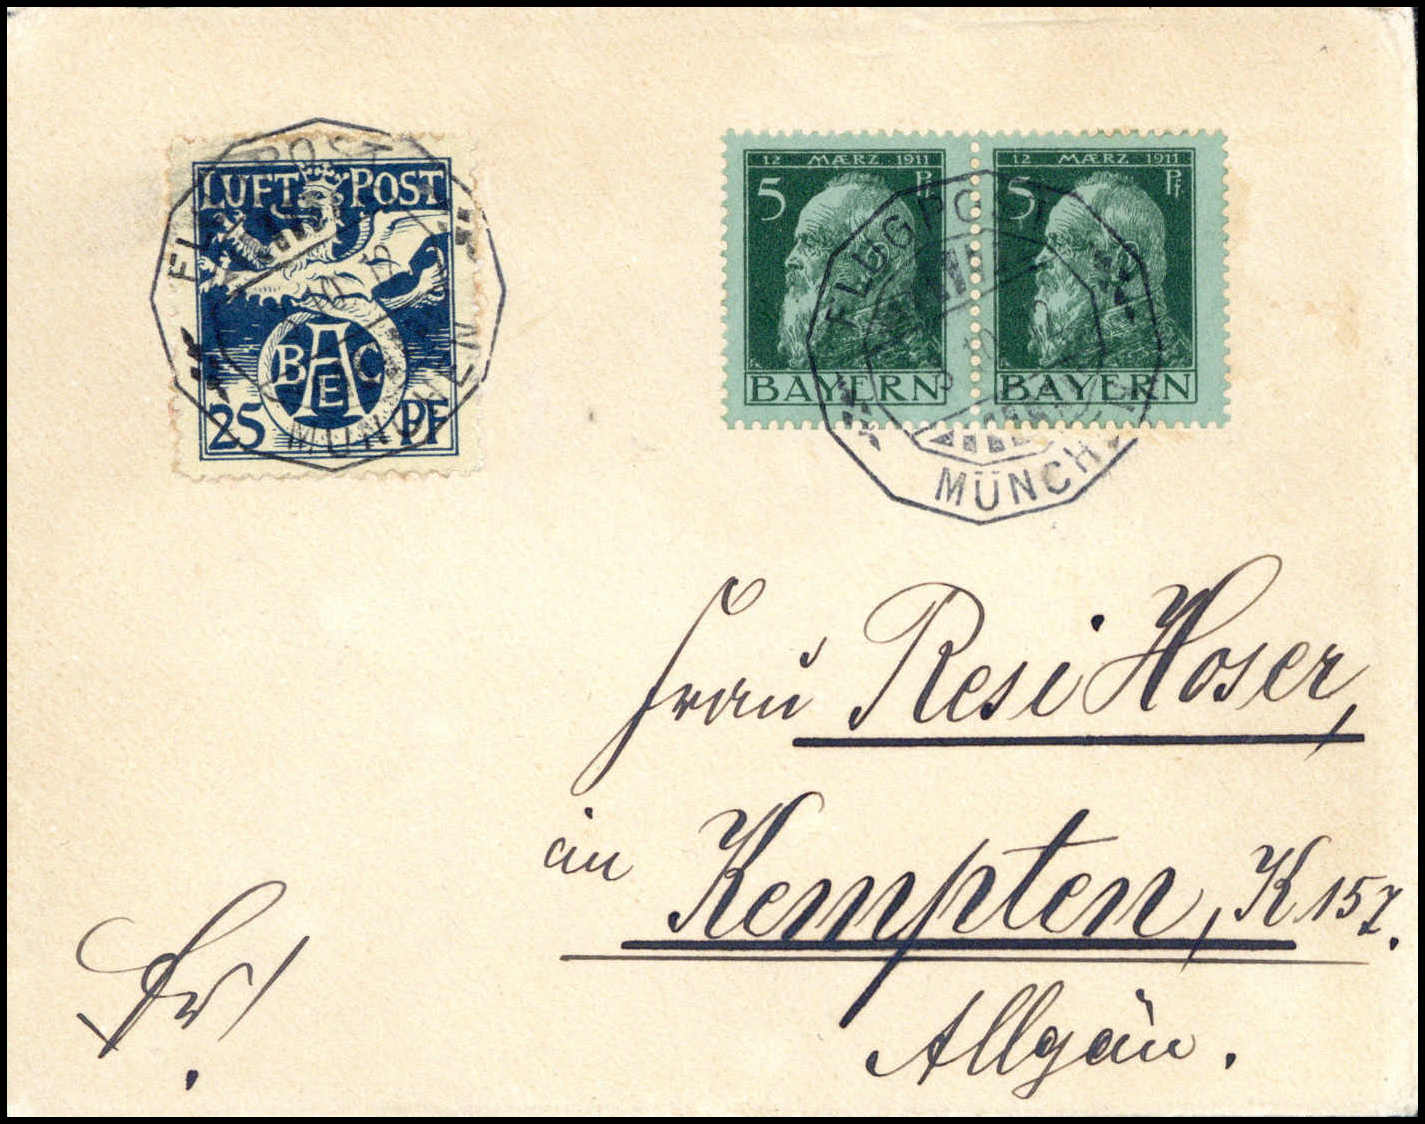 LUFT POST
BAEC
25 PF
FLUGPOST
10 12
MÜNCHEN
12 MÆRZ 1911
5 Pf
BAYERN
12 MÆRZ 1911
5 Pf
BAYERN
FLUGPOST
10
MÜNCH
Frau Resi Hoser,
in Kempten, K 157.
Allgäu.